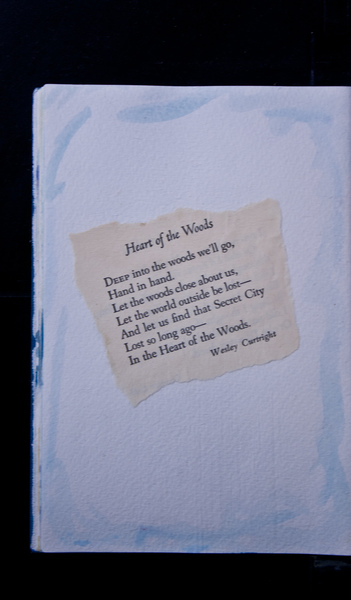 Heart of the Woods
DEEP into the woods we'll go,
Hand in hand.
Let the woods close about us,
Let the world outside be lost—
And let us find that Secret City
Lost so long ago—
In the Heart of the Woods.
Wesley Curtright